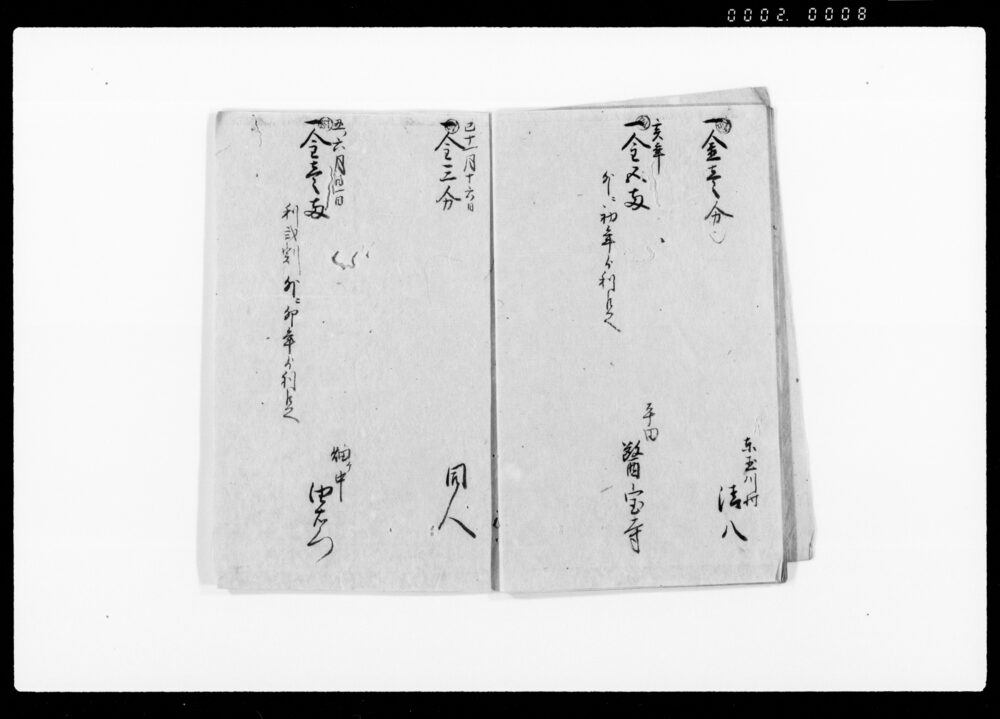 0002. 0008
一金壱分
東玉川村
清八
亥年
一金五両
外ニ初年ゟ利足
平田
醫宝寺
巳十一月十六日
一金三分
同人
六月
一金壱両
利弐割 外ニ卯年ゟ利足
畑中